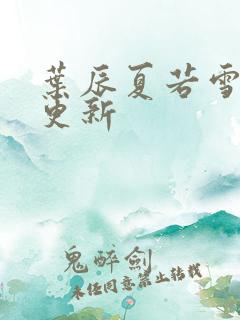 葉辰夏若雪
更新
鬼醉劍
未经同意禁止转载